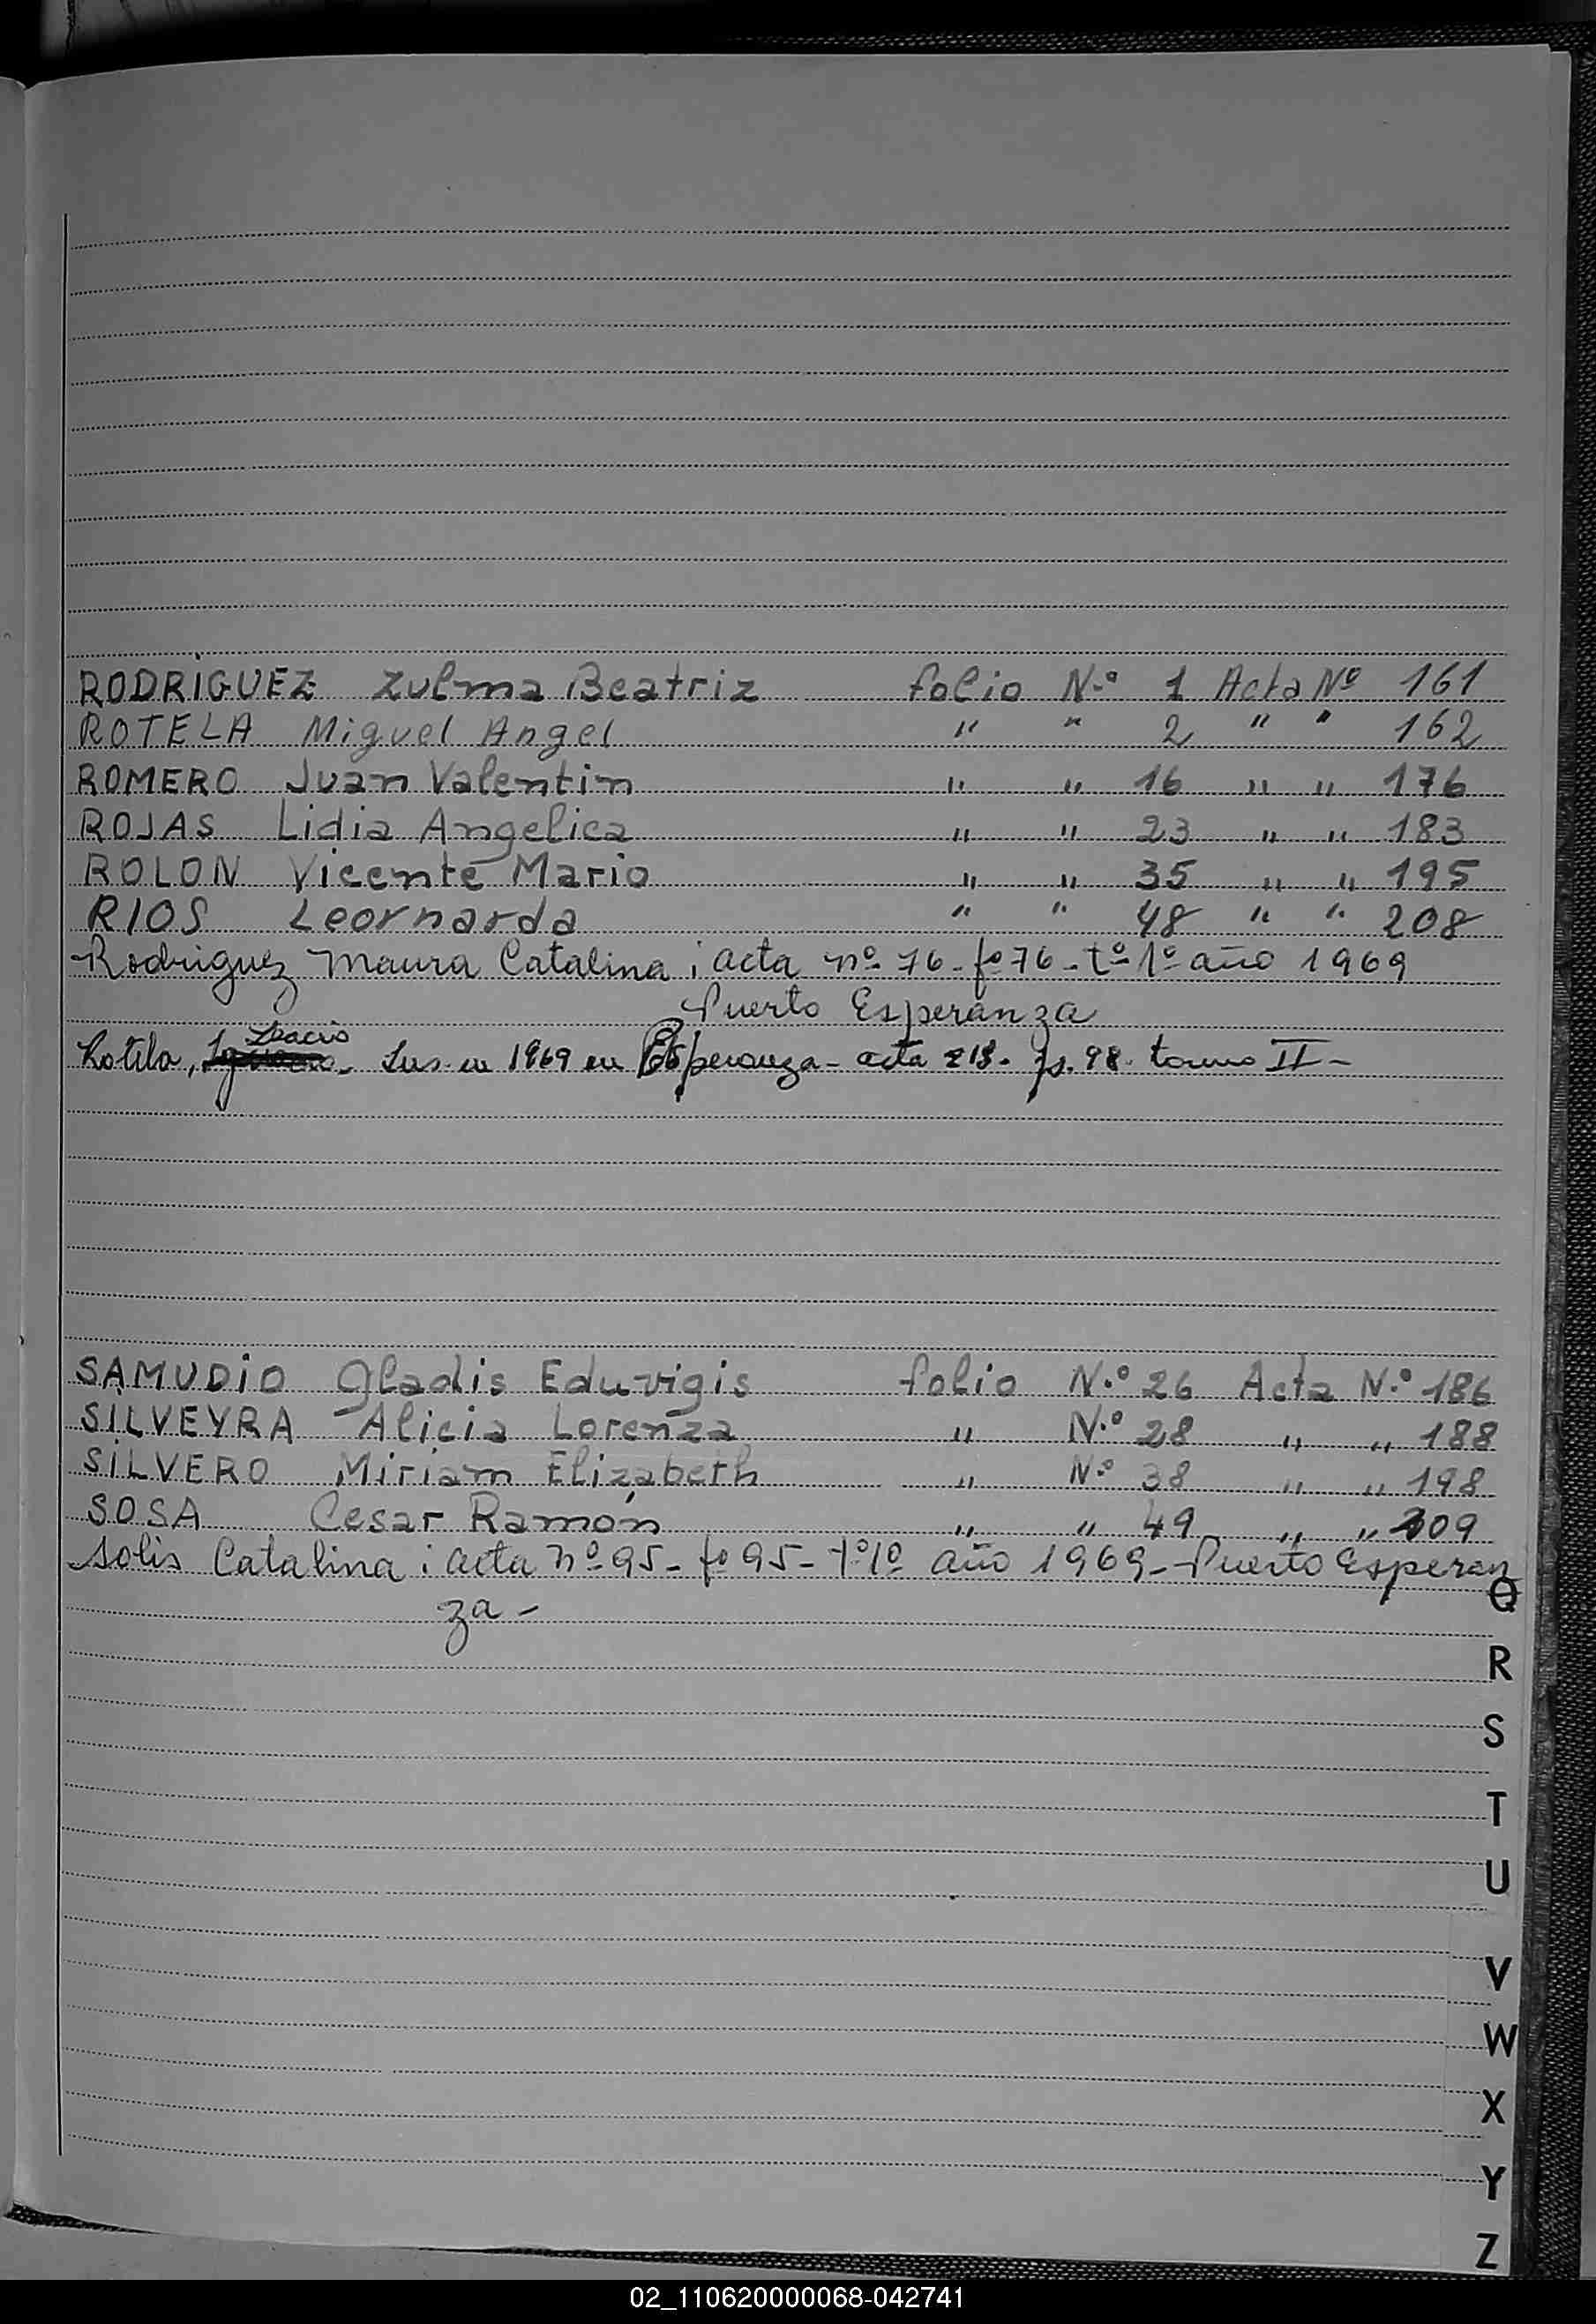 RODRIGUEZ Zulma Beatriz folio N.º 1 Acta Nº 161
ROTELA Miguel Angel " " 2 " " 162
ROMERO Juan Valentin " " 16 " " 176
ROJAS Lidia Angelica " " 23 " " 183
ROLON Vicente Mario " " 35 " " 195
RIOS Leornarda " " 48 " " 208
Rodriguez Maura Catalina; acta nº 76- fº 76- tº 1º año 1969
Puerto Esperanza
Rotela, Ins. en 1969 en Esperanza- acta 218. fs. 98. tomo II-
SAMUDIO Gladis Eduvigis folio N.º 26 Acta N.º 186
SILVEYRA Alicia Lorenza " N.º 28 " " 188
SILVERO Miriam Elizabeth " Nº 38 " " 198
SOSA Cesar Ramón " " 49 " " 209
Solis Catalina; acta nº 95- fº 95- tº 1º año 1969- Puerto Esperan
za-
Q
R
S
T
U
V
W
X
Y
Z
02_110620000068-042741